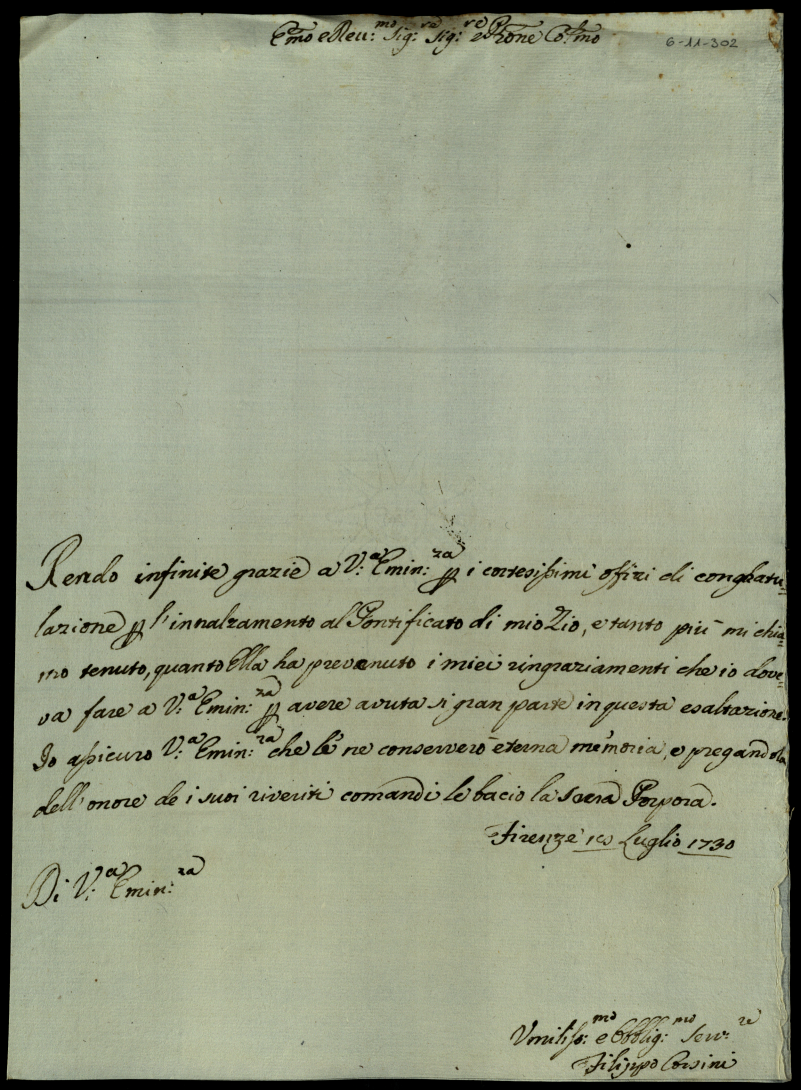 Emo e Reu:mo Sig:re Sig:re e Prone Co:lmo
6-11-302
Rendo infinite grazie a V:a Emin:za p i cortesissimi offizi di congratu-
lazione p l'innalzamento al Pontificato di mio Zio, e tanto più mi chia-
mo tenuto, quanto Ella ha prevenuto i miei ringraziamenti che io dove-
va fare a V:a Emin:za p avere avuta si gran parte in questa esaltazione.
Io assicuro V:a Emin:za che le ne conserverò eterna memoria, e pregandola
dell'onore de i suoi riveriti comandi le bacio la sacra Porpora.
Firenze Luglio 1730
Di V:a Emin:za
Vmiliss:mo e Obblig:mo Serv:re
Filippo Corsini